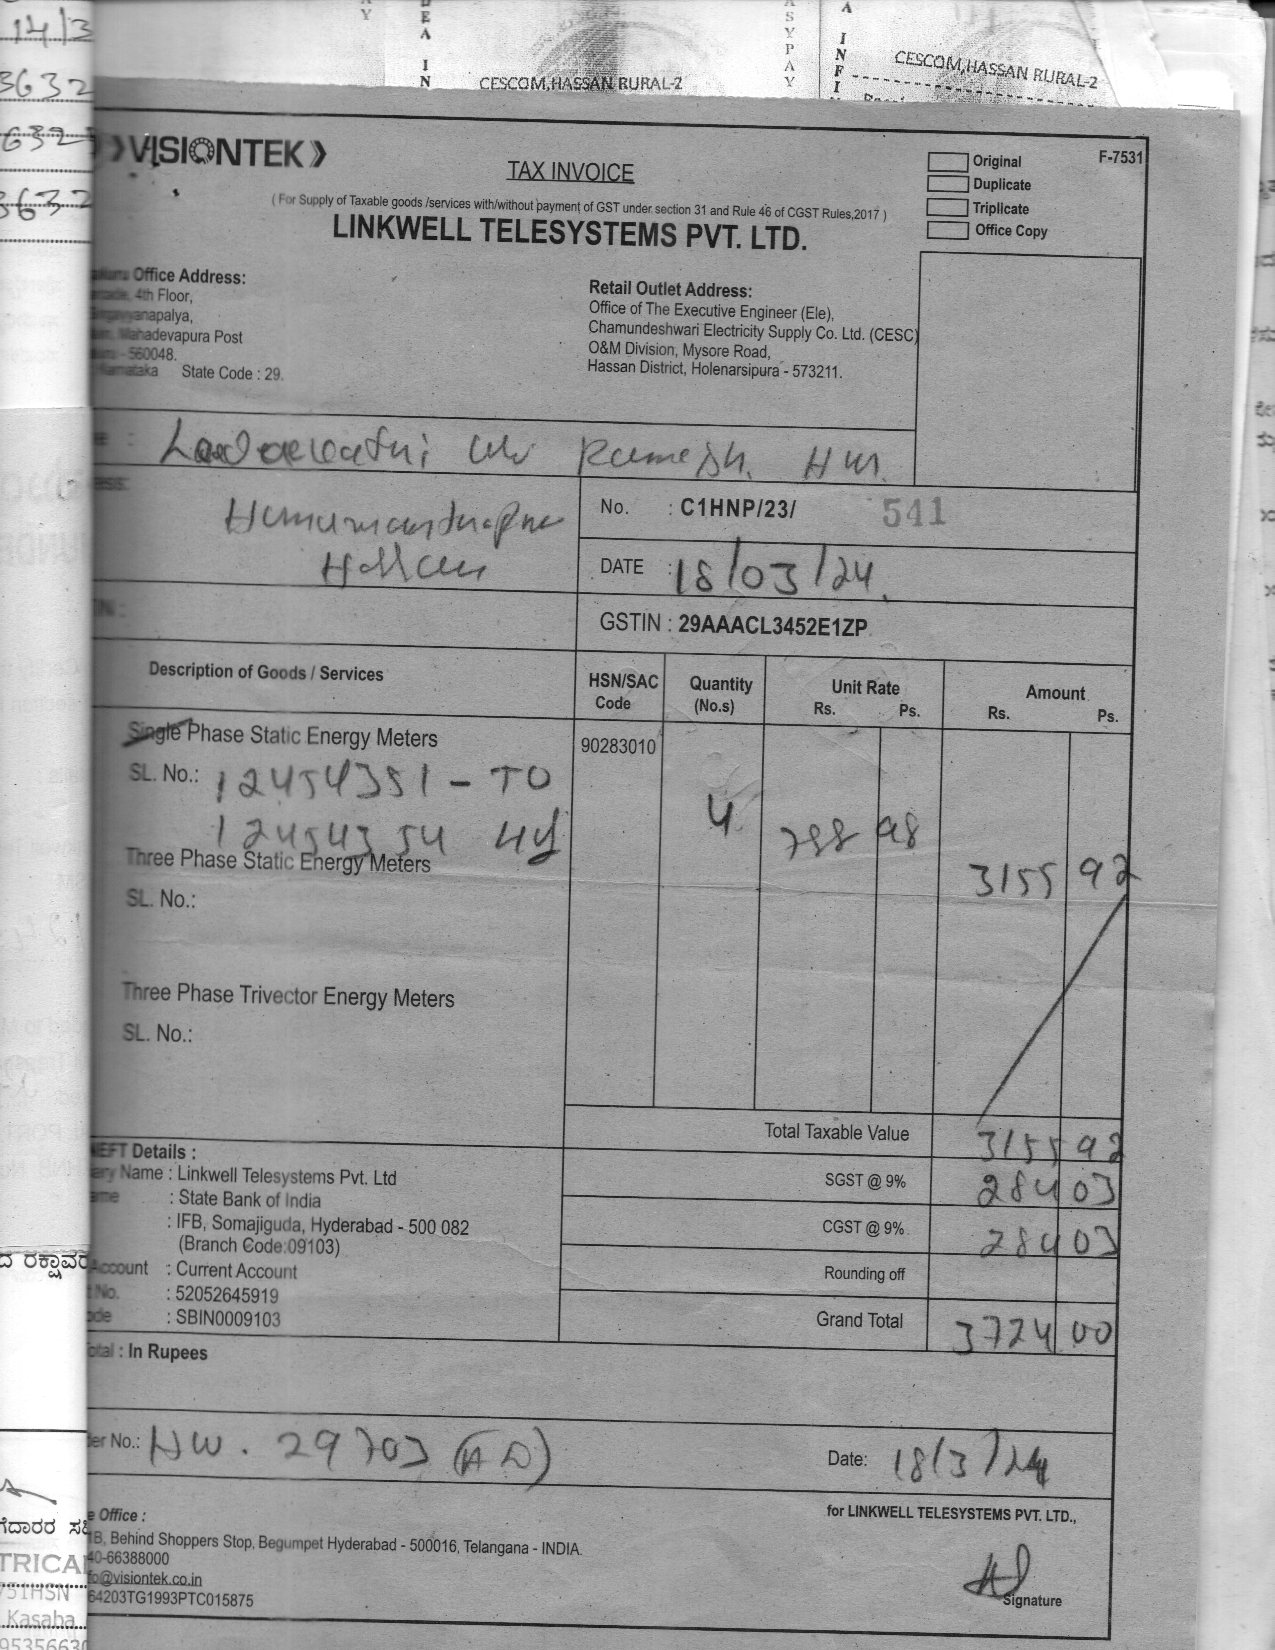 14/3
3632
632
3632
CESCOM,HASSAN RURAL-2
CESCOM,HASSAN RURAL-2
VISIONTEK
TAX INVOICE
Original
F-7531
Duplicate
Triplicate
Office Copy
( For Supply of Taxable goods /services with/without payment of GST under section 31 and Rule 46 of CGST Rules,2017 )
LINKWELL TELESYSTEMS PVT. LTD.
Office Address:
4th Floor,
Mahadevapura Post
- 560048.
Karnataka State Code : 29.
Retail Outlet Address:
Office of The Executive Engineer (Ele),
Chamundeshwari Electricity Supply Co. Ltd. (CESC)
O&M Division, Mysore Road,
Hassan District, Holenarsipura - 573211.
Ramesh. H M.
No. : C1HNP/23/ 541
Hassan
DATE : 18/03/24.
GSTIN : 29AAACL3452E1ZP
Description of Goods / Services
HSN/SAC Code
Quantity (No.s)
Unit Rate
Rs. Ps.
Amount
Rs. Ps.
Single Phase Static Energy Meters
90283010
SL. No.: 12454351 - TO
12454354
4
788 98
3155 92
Three Phase Static Energy Meters
SL. No.:
Three Phase Trivector Energy Meters
SL. No.:
Total Taxable Value 3155 92
SGST @ 9% 284 03
CGST @ 9% 284 03
Rounding off
Grand Total 3724 00
NEFT Details :
Name : Linkwell Telesystems Pvt. Ltd
: State Bank of India
: IFB, Somajiguda, Hyderabad - 500 082
(Branch Code:09103)
Account : Current Account
No. : 52052645919
: SBIN0009103
Total : In Rupees
No.: HW. 29703 (AD)
Date: 18/3/24
for LINKWELL TELESYSTEMS PVT. LTD.,
Office :
Behind Shoppers Stop, Begumpet Hyderabad - 500016, Telangana - INDIA.
40-66388000
fo@visiontek.co.in
64203TG1993PTC015875
Signature
Kasaba